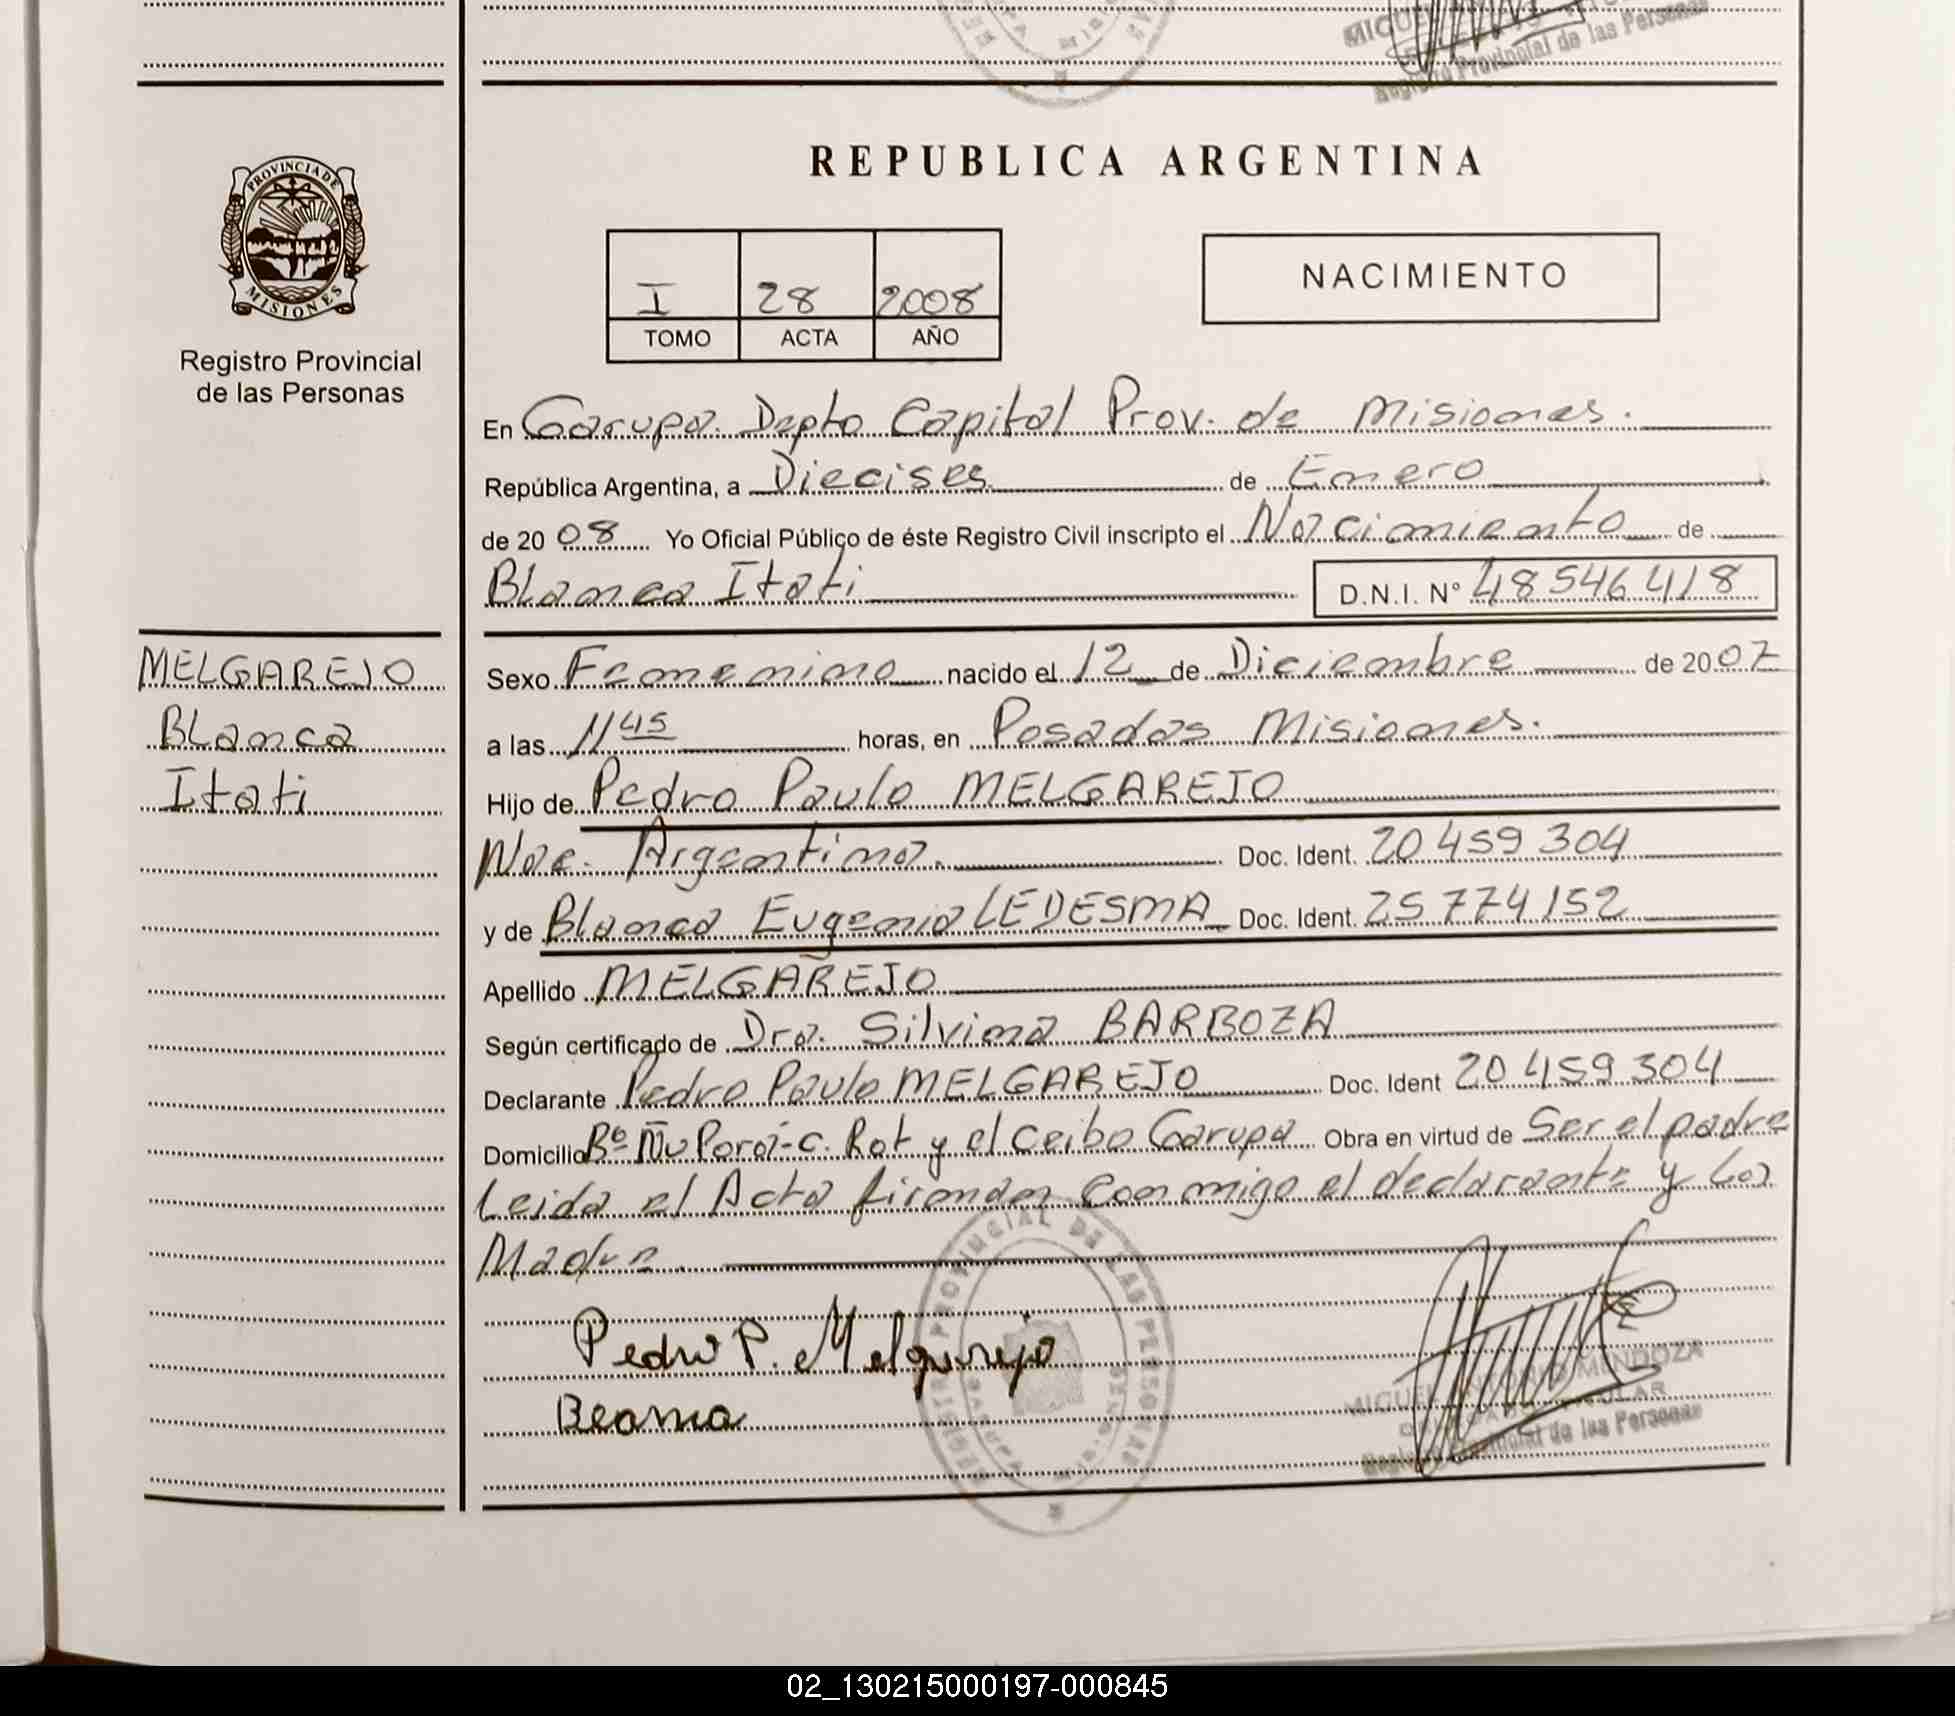 MIGUEL
Registro Provincial de las Personas
PROVINCIA DE
MISIONES
Registro Provincial
de las Personas
REPUBLICA ARGENTINA
I 28 2008
TOMO ACTA AÑO
NACIMIENTO
En Garupa. Depto Capital Prov. de Misiones.
República Argentina, a Diecises de Enero
de 2008 Yo Oficial Público de éste Registro Civil inscripto el Nacimiento de
Blanca Itati D.N.I. N° 48546418
MELGAREJO
Blanca
Itati
Sexo Femenino nacido el 12 de Diciembre de 2007
a las 11 45 horas, en Posadas Misiones.
Hijo de Pedro Paulo MELGAREJO
Nac. Argentina. Doc. Ident. 20 459 304
y de Blanca Eugenia LEDESMA Doc. Ident. 25 774 152
Apellido MELGAREJO
Según certificado de Dra. Silvina BARBOZA
Declarante Pedro Paulo MELGAREJO Doc. Ident 20 459 304
Domicilio Bº Ñu Porá-C. Rot y el Ceibo Garupa Obra en virtud de Ser el padre
Leida el Acta firman conmigo el declarante y la
Madre.
Pedro P. Melgarejo
PROVINCIAL DE LAS PERSONAS
MIGUEL ANTONIO MENDOZA
Registro Provincial de las Personas
02_130215000197-000845